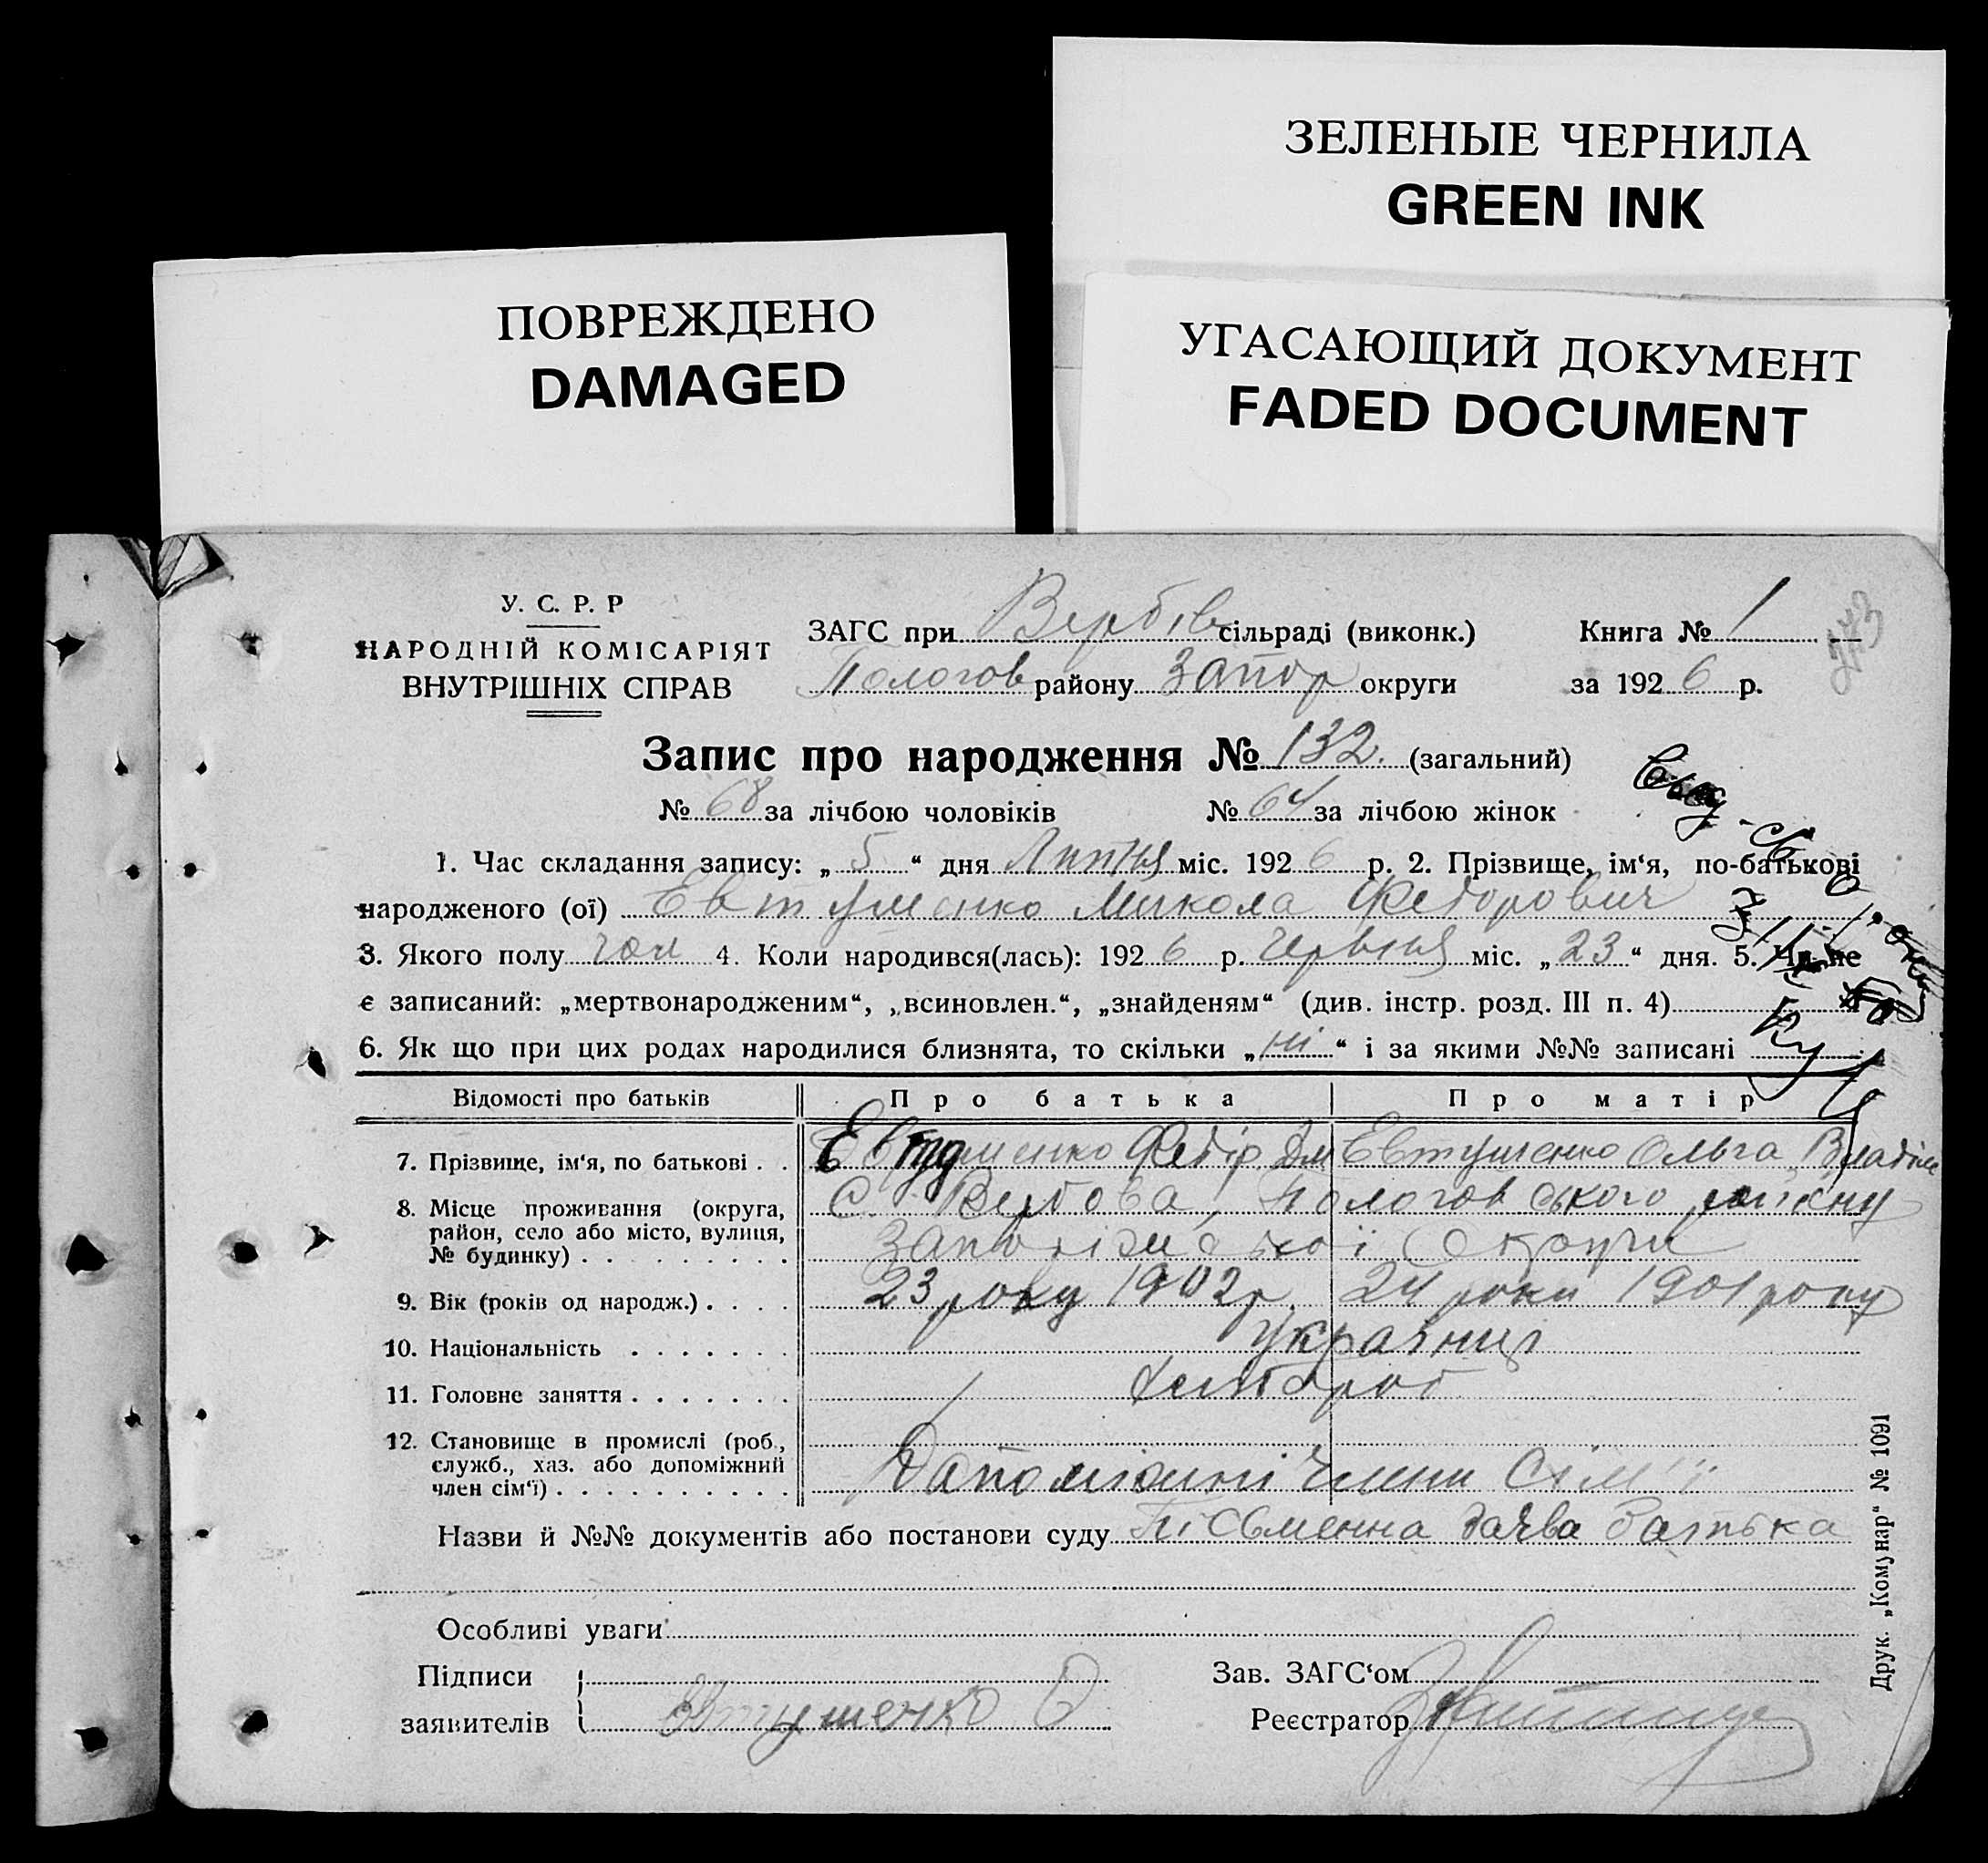 ЗЕЛЕНЫЕ ЧЕРНИЛА
GREEN INK
ПОВРЕЖДЕНО
DAMAGED
УГАСАЮЩИЙ ДОКУМЕНТ
FADED DOCUMENT
У. С. Р. Р
НАРОДНІЙ КОМІСАРІЯТ
ВНУТРІШНІХ СПРАВ
ЗАГС при Вербів сільраді (виконк.) Книга № 1
Пологов району Запор округи за 1926 р.
Запис про народження № 132. (загальний)
№ 68 за лічбою чоловіків № 64 за лічбою жінок
1. Час складання запису: „ 5 “ дня Липня міс. 1926 р. 2. Прізвище, ім‘я, по-батькові
народженого (ої) Евтушенко Микола Федорович
3. Якого полу чол 4. Коли народився(лась): 1926 р. Червня міс. „ 23 “ дня. 5. Чи не
є записаний: „мертвонародженим“, „всиновлен.“, „знайденям“ (див. інстр. розд. III п. 4)
6. Як що при цих родах народилися близнята, то скільки „ ні “ і за якими №№ записані
Відомості про батьків Про батька Про матір
7. Прізвище, ім‘я, по батькові . . Евтушенко Федір Дм Евтушенко Ольга
8. Місце проживання (округа, район, село або місто, вулиця, № будинку) . . . . . . . . . С. Вербова, Пологовського району
Запорізської Округи
9. Вік (років од народж.) . . . . 23 року 1902 р. 24 роки 1901 року
10. Національність . . . . . . . Українці
11. Головне заняття . . . . . . . хлібороб
12. Становище в промислі (роб., служб., хаз. або допоміжний член сім‘ї) . . . . . . . . . . Допоміжні члени Сім'ї
Назви й №№ документів або постанови суду Пісьменна заява батька
Особливі уваги
Підписи заявителів Евтушенко
Зав. ЗАГС‘ом
Реєстратор
Друк. „Комунар“ № 1091